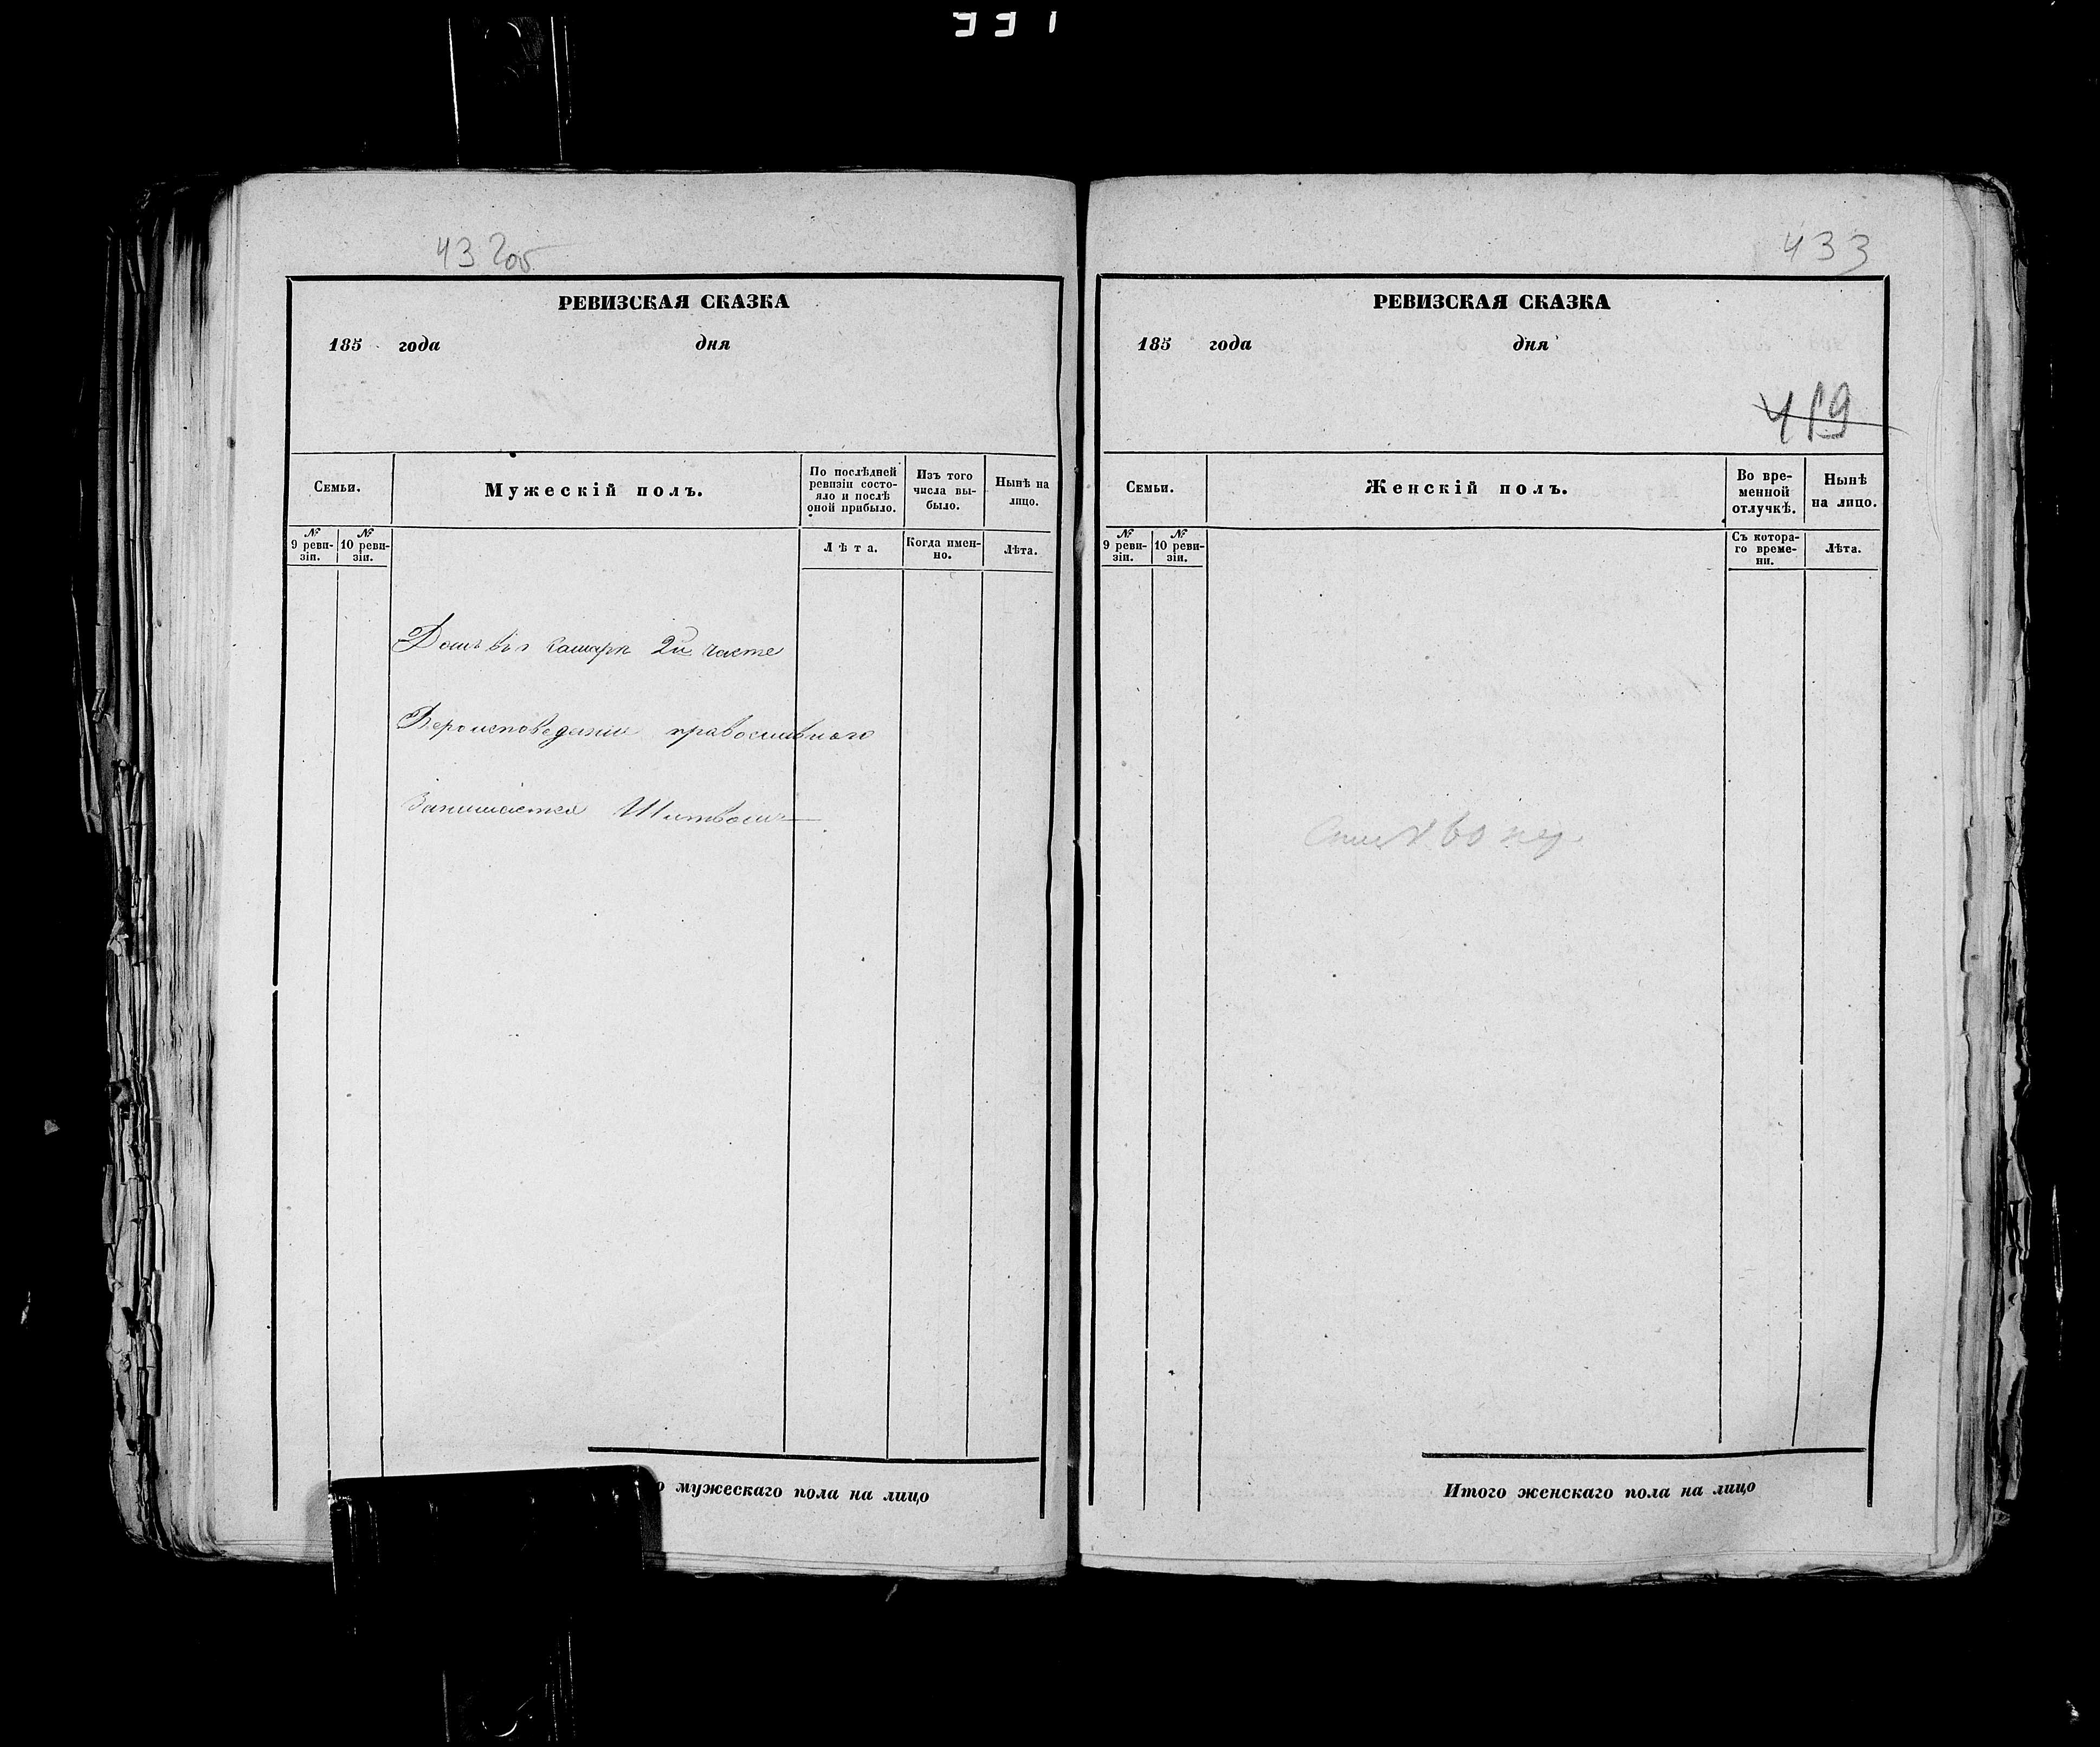 432об
РЕВИЗСКАЯ СКАЗКА
185 года дня
Семьи.
Мужескій полъ.
По послѣдней
ревизіи состо-
яло и послѣ
оной прибыло.
Изъ того
числа вы-
было.
Нынѣ на
лицо.
№
9 реви-
зіи.
№
10 реви-
зіи.
Лѣта.
Когда имен-
но.
Лѣта.
2й части
Вероисповедания православного
Занимается
мужескаго пола на лицо
433
РЕВИЗСКАЯ СКАЗКА
185 года дня
419
Семьи.
Женскій полъ.
Во вре-
менной
отлучкѣ.
Нынѣ
на лицо.
№
9 реви-
зіи.
№
10 реви-
зіи.
Съ котора-
го време-
ни.
Лѣта.
Итого женскаго пола на лицо